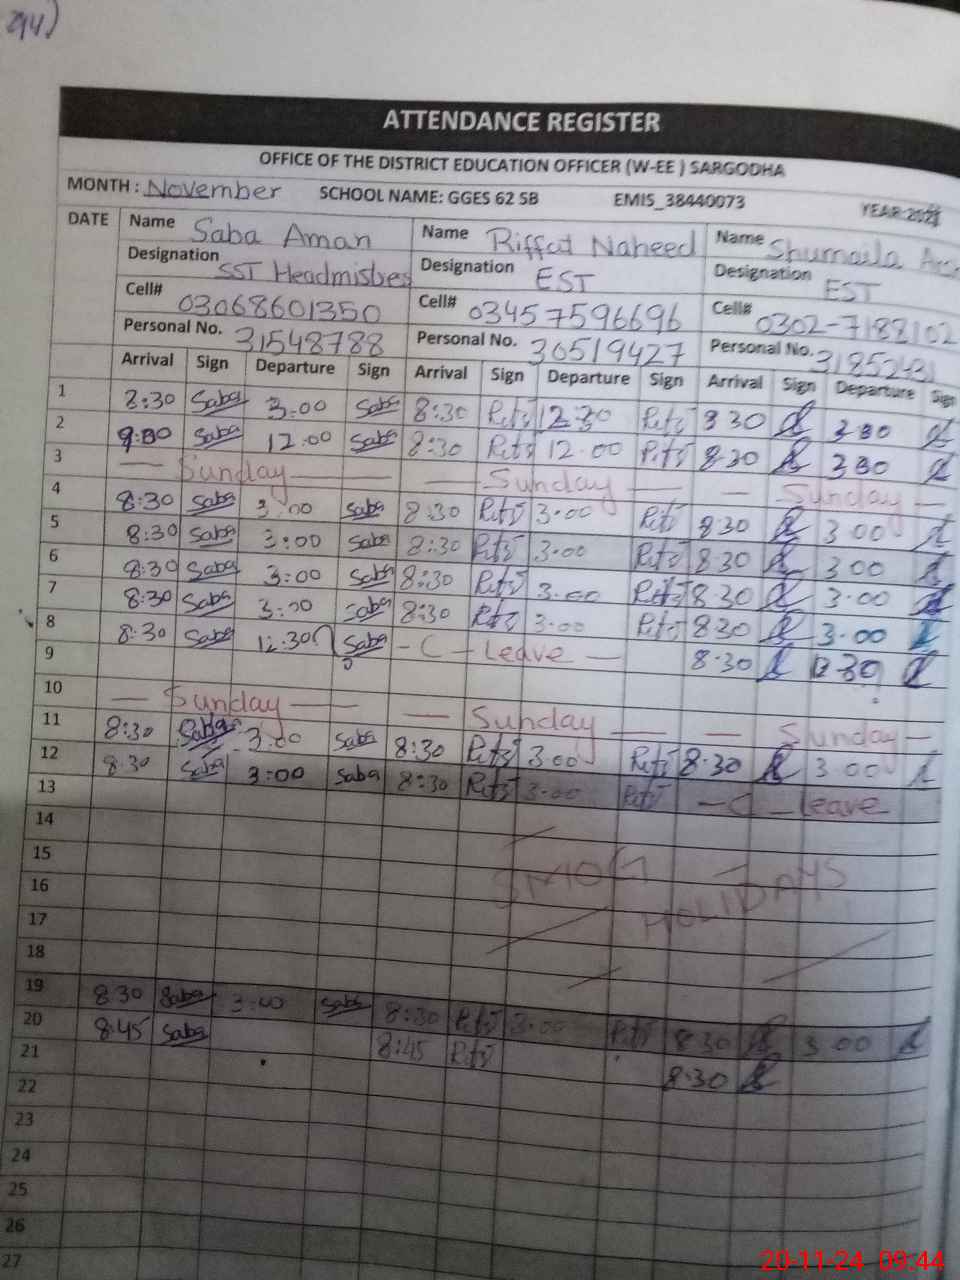 94)
ATTENDANCE REGISTER
OFFICE OF THE DISTRICT EDUCATION OFFICER (W-EE ) SARGODHA
MONTH : November SCHOOL NAME: GGES 62 SB EMIS_38440073 YEAR-
DATE Name Saba Aman Name Riffat Naheed Name Shumaila
Designation SST Headmistres Designation EST Designation EST
Cell# 03068601350 Cell# 03457596696 Cell# 0302-7188102
Personal No. 31548788 Personal No. 30519427 Personal No.
Arrival Sign Departure Sign Arrival Sign Departure Sign Arrival Sign Departure Sign
1 8:30 Saba 3:00 Saba 8:30 12:30 8 30
2 Saba 12:00 Saba 8:30 12:00 8:30
3 — Sunday — — Sunday — — Sunday —
4 8:30 Saba 3:00 Saba 8:30 3:00 8:30 3 00
5 8:30 Saba 3:00 Saba 8:30 3:00 8:30 3 00
6 8:30 Saba 3:00 Saba 8:30 3:00 8:30 3:00
7 8:30 Saba 3:00 Saba 8:30 3:00 8:30 3:00
8 8:30 Saba 12:30 Saba - C - Leave - 8:30 12 30
9
10 — Sunday — — Sunday — — Sunday —
11 8:30 Saba 3:00 Saba 8:30 3:00 8:30 3 00
12 8:30 Saba 3:00 Saba 8:30 3:00 - C - leave
13
14
15 SMOG HOLIDAYS
16
17
18
19 8:30 Saba 3:00 Saba 8:30 3:00 8:30 3 00
20 8:45 Saba 8:45 8:30
21
22
23
24
25
26
27
20-11-24 09:44